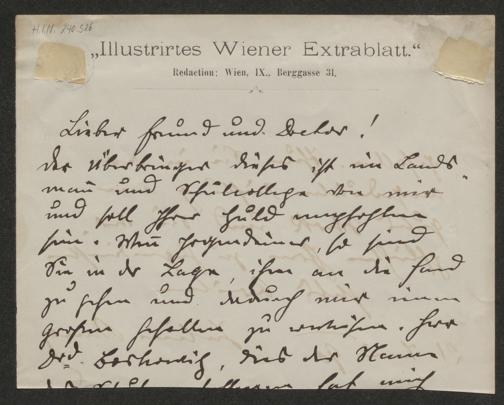 H.I.N. 240.526
„Illustrirtes Wiener Extrablatt.“
Redaction: Wien, IX., Berggasse 31.
Lieber Freund und Doctor!
der Überbringer dieses ist ein Lands-
mann und Schulcollege von mir
und soll Ihrer Huld empfohlen
sein. Wenn irgendeiner, so sind
Sie in der Lage, ihm an die Hand
zu gehen und dadurch mir einen
großen Gefallen zu erweisen. Herr
Boskowitz, dies der Name
hat mich